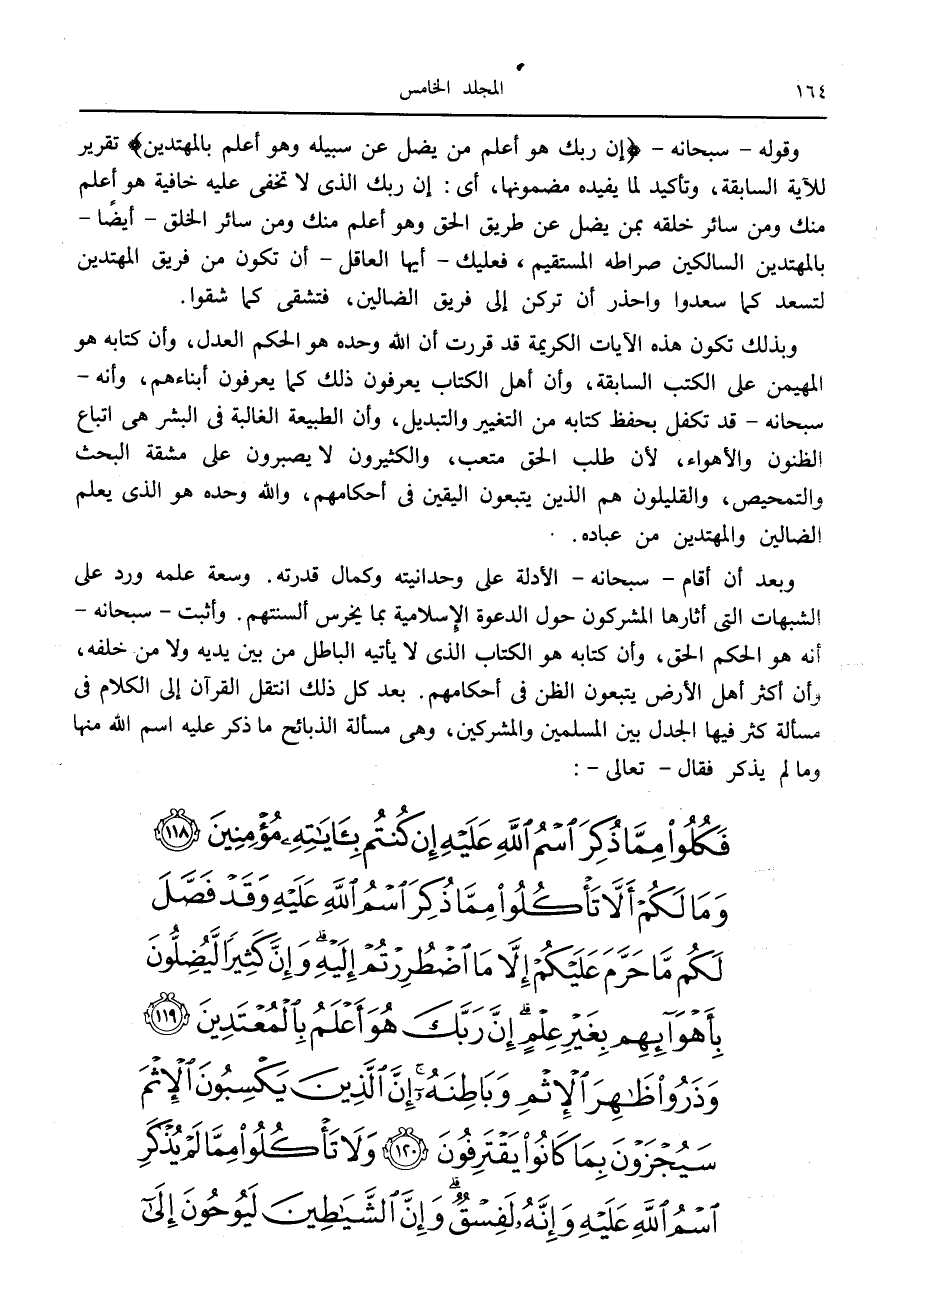 ١٦٤
المجلد الخامس
وقوله – سبحانه – ﴿إن ربك هو أعلم من يضل عن سبيله وهو أعلم بالمهتدين﴾ تقرير
للآية السابقة، وتأكيد لما يفيده مضمونها، أى : إن ربك الذى لا تخفى عليه خافية هو أعلم
منك ومن سائر خلقه بمن يضل عن طريق الحق وهو أعلم منك ومن سائر الخلق – أيضًا –
بالمهتدين السالكين صراطه المستقيم ، فعليك – أيها العاقل – أن تكون من فريق المهتدين
لتسعد كما سعدوا واحذر أن تركن إلى فريق الضالين، فتشقى كما شقوا.
وبذلك تكون هذه الآيات الكريمة قد قررت أن الله وحده هو الحكم العدل، وأن كتابه هو
المهيمن على الكتب السابقة، وأن أهل الكتاب يعرفون ذلك كما يعرفون أبناءهم، وأنه –
سبحانه – قد تكفل بحفظ كتابه من التغيير والتبديل، وأن الطبيعة الغالبة فى البشر هى اتباع
الظنون والأهواء، لأن طلب الحق متعب، والكثيرون لا يصبرون على مشقة البحث
والتمحيص، والقليلون هم الذين يتبعون اليقين فى أحكامهم، والله وحده هو الذى يعلم
الضالين والمهتدين من عباده.
وبعد أن أقام – سبحانه – الأدلة على وحدانيته وكمال قدرته. وسعة علمه ورد على
الشبهات التى أثارها المشركون حول الدعوة الإسلامية بما يخرس ألسنتهم. وأثبت – سبحانه –
أنه هو الحكم الحق، وأن كتابه هو الكتاب الذى لا يأتيه الباطل من بين يديه ولا من خلفه،
وأن أكثر أهل الأرض يتبعون الظن فى أحكامهم. بعد كل ذلك انتقل القرآن إلى الكلام فى
مسألة كثر فيها الجدل بين المسلمين والمشركين، وهى مسألة الذبائح ما ذكر عليه اسم الله منها
وما لم يذكر فقال – تعالى – :
فَكُلُوا۟ مِمَّا ذُكِرَ ٱسْمُ ٱللَّهِ عَلَيْهِ إِن كُنتُم بِـَٔايَـٰتِهِۦ مُؤْمِنِينَ ١١٨
وَمَا لَكُمْ أَلَّا تَأْكُلُوا۟ مِمَّا ذُكِرَ ٱسْمُ ٱللَّهِ عَلَيْهِ وَقَدْ فَصَّلَ
لَكُم مَّا حَرَّمَ عَلَيْكُمْ إِلَّا مَا ٱضْطُرِرْتُمْ إِلَيْهِ ۗ وَإِنَّ كَثِيرًا لَّيُضِلُّونَ
بِأَهْوَآئِهِم بِغَيْرِ عِلْمٍ ۗ إِنَّ رَبَّكَ هُوَ أَعْلَمُ بِٱلْمُعْتَدِينَ ١١٩
وَذَرُوا۟ ظَـٰهِرَ ٱلْإِثْمِ وَبَاطِنَهُۥٓ ۚ إِنَّ ٱلَّذِينَ يَكْسِبُونَ ٱلْإِثْمَ
سَيُجْزَوْنَ بِمَا كَانُوا۟ يَقْتَرِفُونَ ١٢٠ وَلَا تَأْكُلُوا۟ مِمَّا لَمْ يُذْكَرِ
ٱسْمُ ٱللَّهِ عَلَيْهِ وَإِنَّهُۥ لَفِسْقٌ ۗ وَإِنَّ ٱلشَّيَـٰطِينَ لَيُوحُونَ إِلَىٰٓ